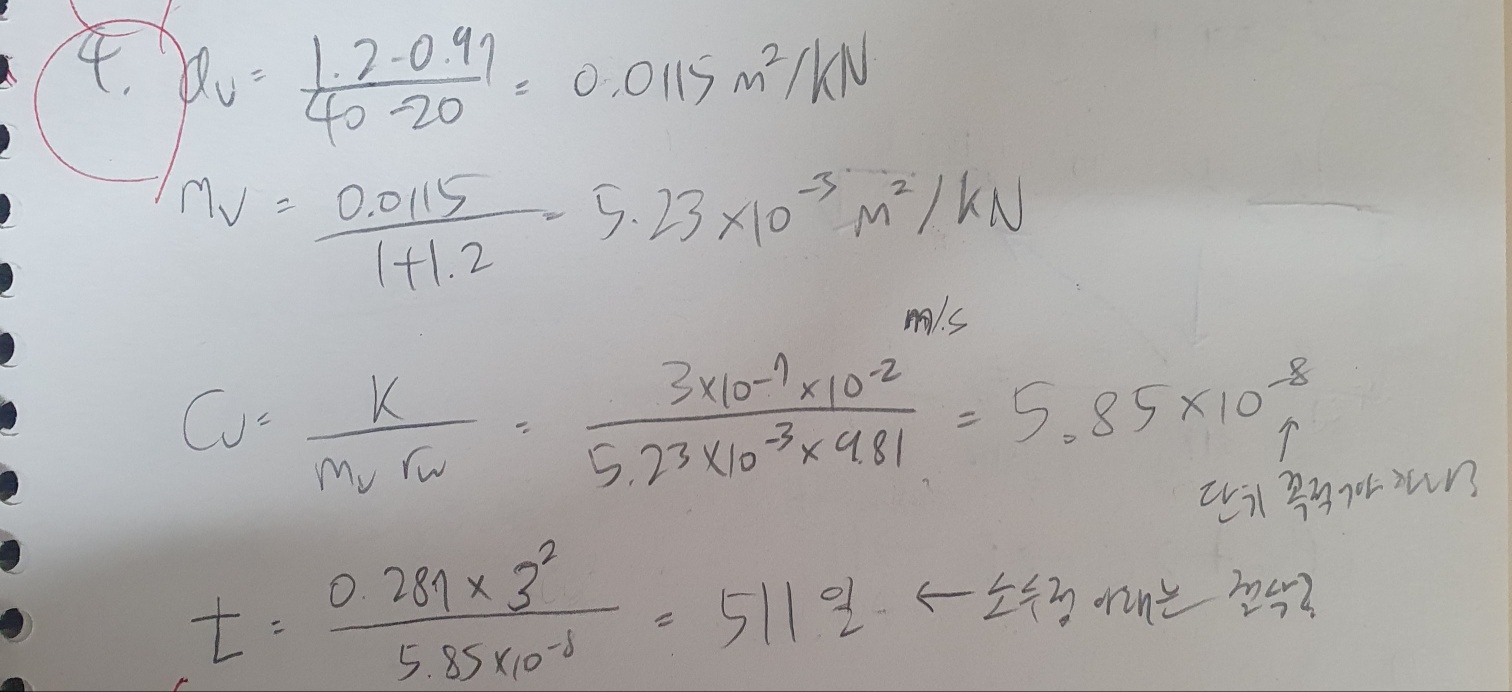 4. av = 1.2-0.97 / 40-20 = 0.0115 m²/kN
mv = 0.0115 / 1+1.2 = 5.23×10⁻³ m²/kN
m/s
Cv = K / mv rw = 3×10⁻⁷×10⁻² / 5.23×10⁻³×9.81 = 5.85×10⁻⁸
↑
단위
t = 0.287×3² / 5.85×10⁻⁸ = 511일 ← 소수점 아래는